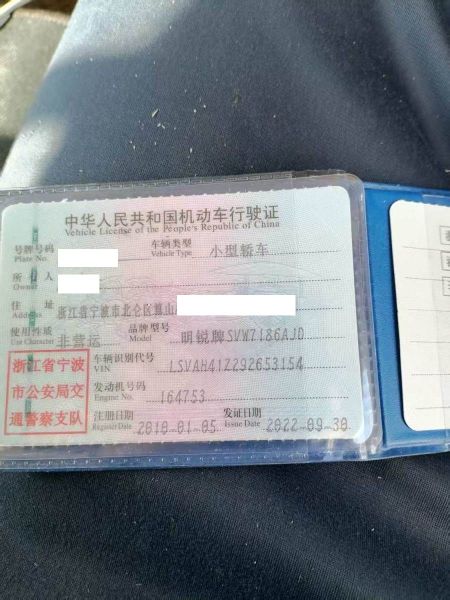 中华人民共和国机动车行驶证
Vehicle License of the People's Republic of China
号牌号码
Plate No.
车辆类型
Vehicle Type
小型轿车
所 有 人
Owner
住 址
Address
浙江省宁波市北仑区
使用性质
Use Character
非营运
品牌型号
Model
明锐牌SVW7186AJD
车辆识别代号
VIN
LSVAH41Z292653154
发动机号码
Engine No.
164753
注册日期
Register Date
2010-01-05
发证日期
Issue Date
2022-09-30
浙江省宁波
市公安局交
通警察支队